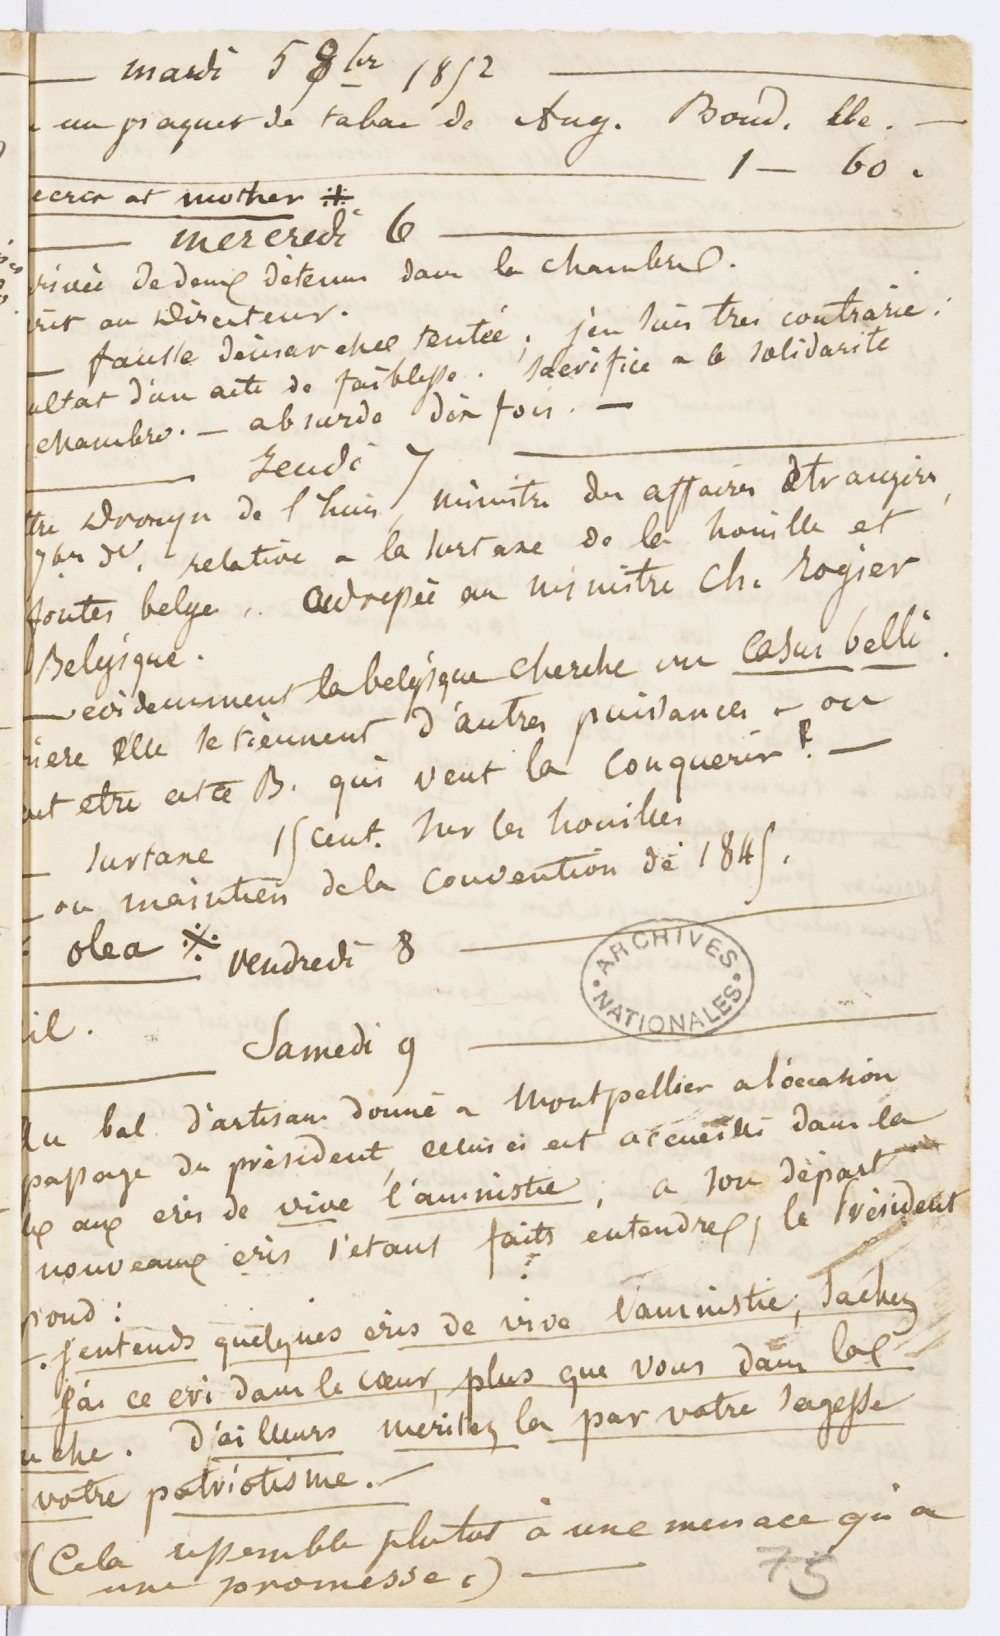 mardi 5 8bre 1852
un paquet de tabac de Aug. Boud. lle. —
1 — 60.
at mother ⁜
mercredi 6
rivée de deux détenus dans la chambre.
rit au Directeur.
— fausse démarche tentée, j'en suis très contrarié :
ultat d'un acte de faiblesse. sacrifice a la solidarité
chambre. — absurde dix fois. —
Jeudi 7
ttre Drouyn de l'huis, ministre des affaires étrangères,
7bre dr, relative a la surtaxe de la houille et
fontes belge, adressée au ministre Ch. Rogier
Belgique.
— evidemment la belgique cherche un casus belli.
rière elle se tiennent d'autres puissances — ou
ut etre est ce B. qui veut la conquerir ? —
— surtaxe 15 cent. sur les houilles
— ou maintien de la convention de 1845.
olea ⁜ vendredi 8
il.
Samedi 9
Au bal d'artisans donné a Montpellier a l'occasion
passage du président, celui ci est accueilli dans la
aux cris de vive l'amnistie, a son départ
nouveaux cris s'étant faits entendre, le Président
pond :
. J'entends quelques cris de vive l'amnistie, sachez
j'ai ce cri dans le cœur, plus que vous dans la
uche. D'ailleurs meritez la par votre sagesse
votre patriotisme. —
(Cela ressemble plutot à une menace qu'a
une promesse.) —
ARCHIVES NATIONALES
75